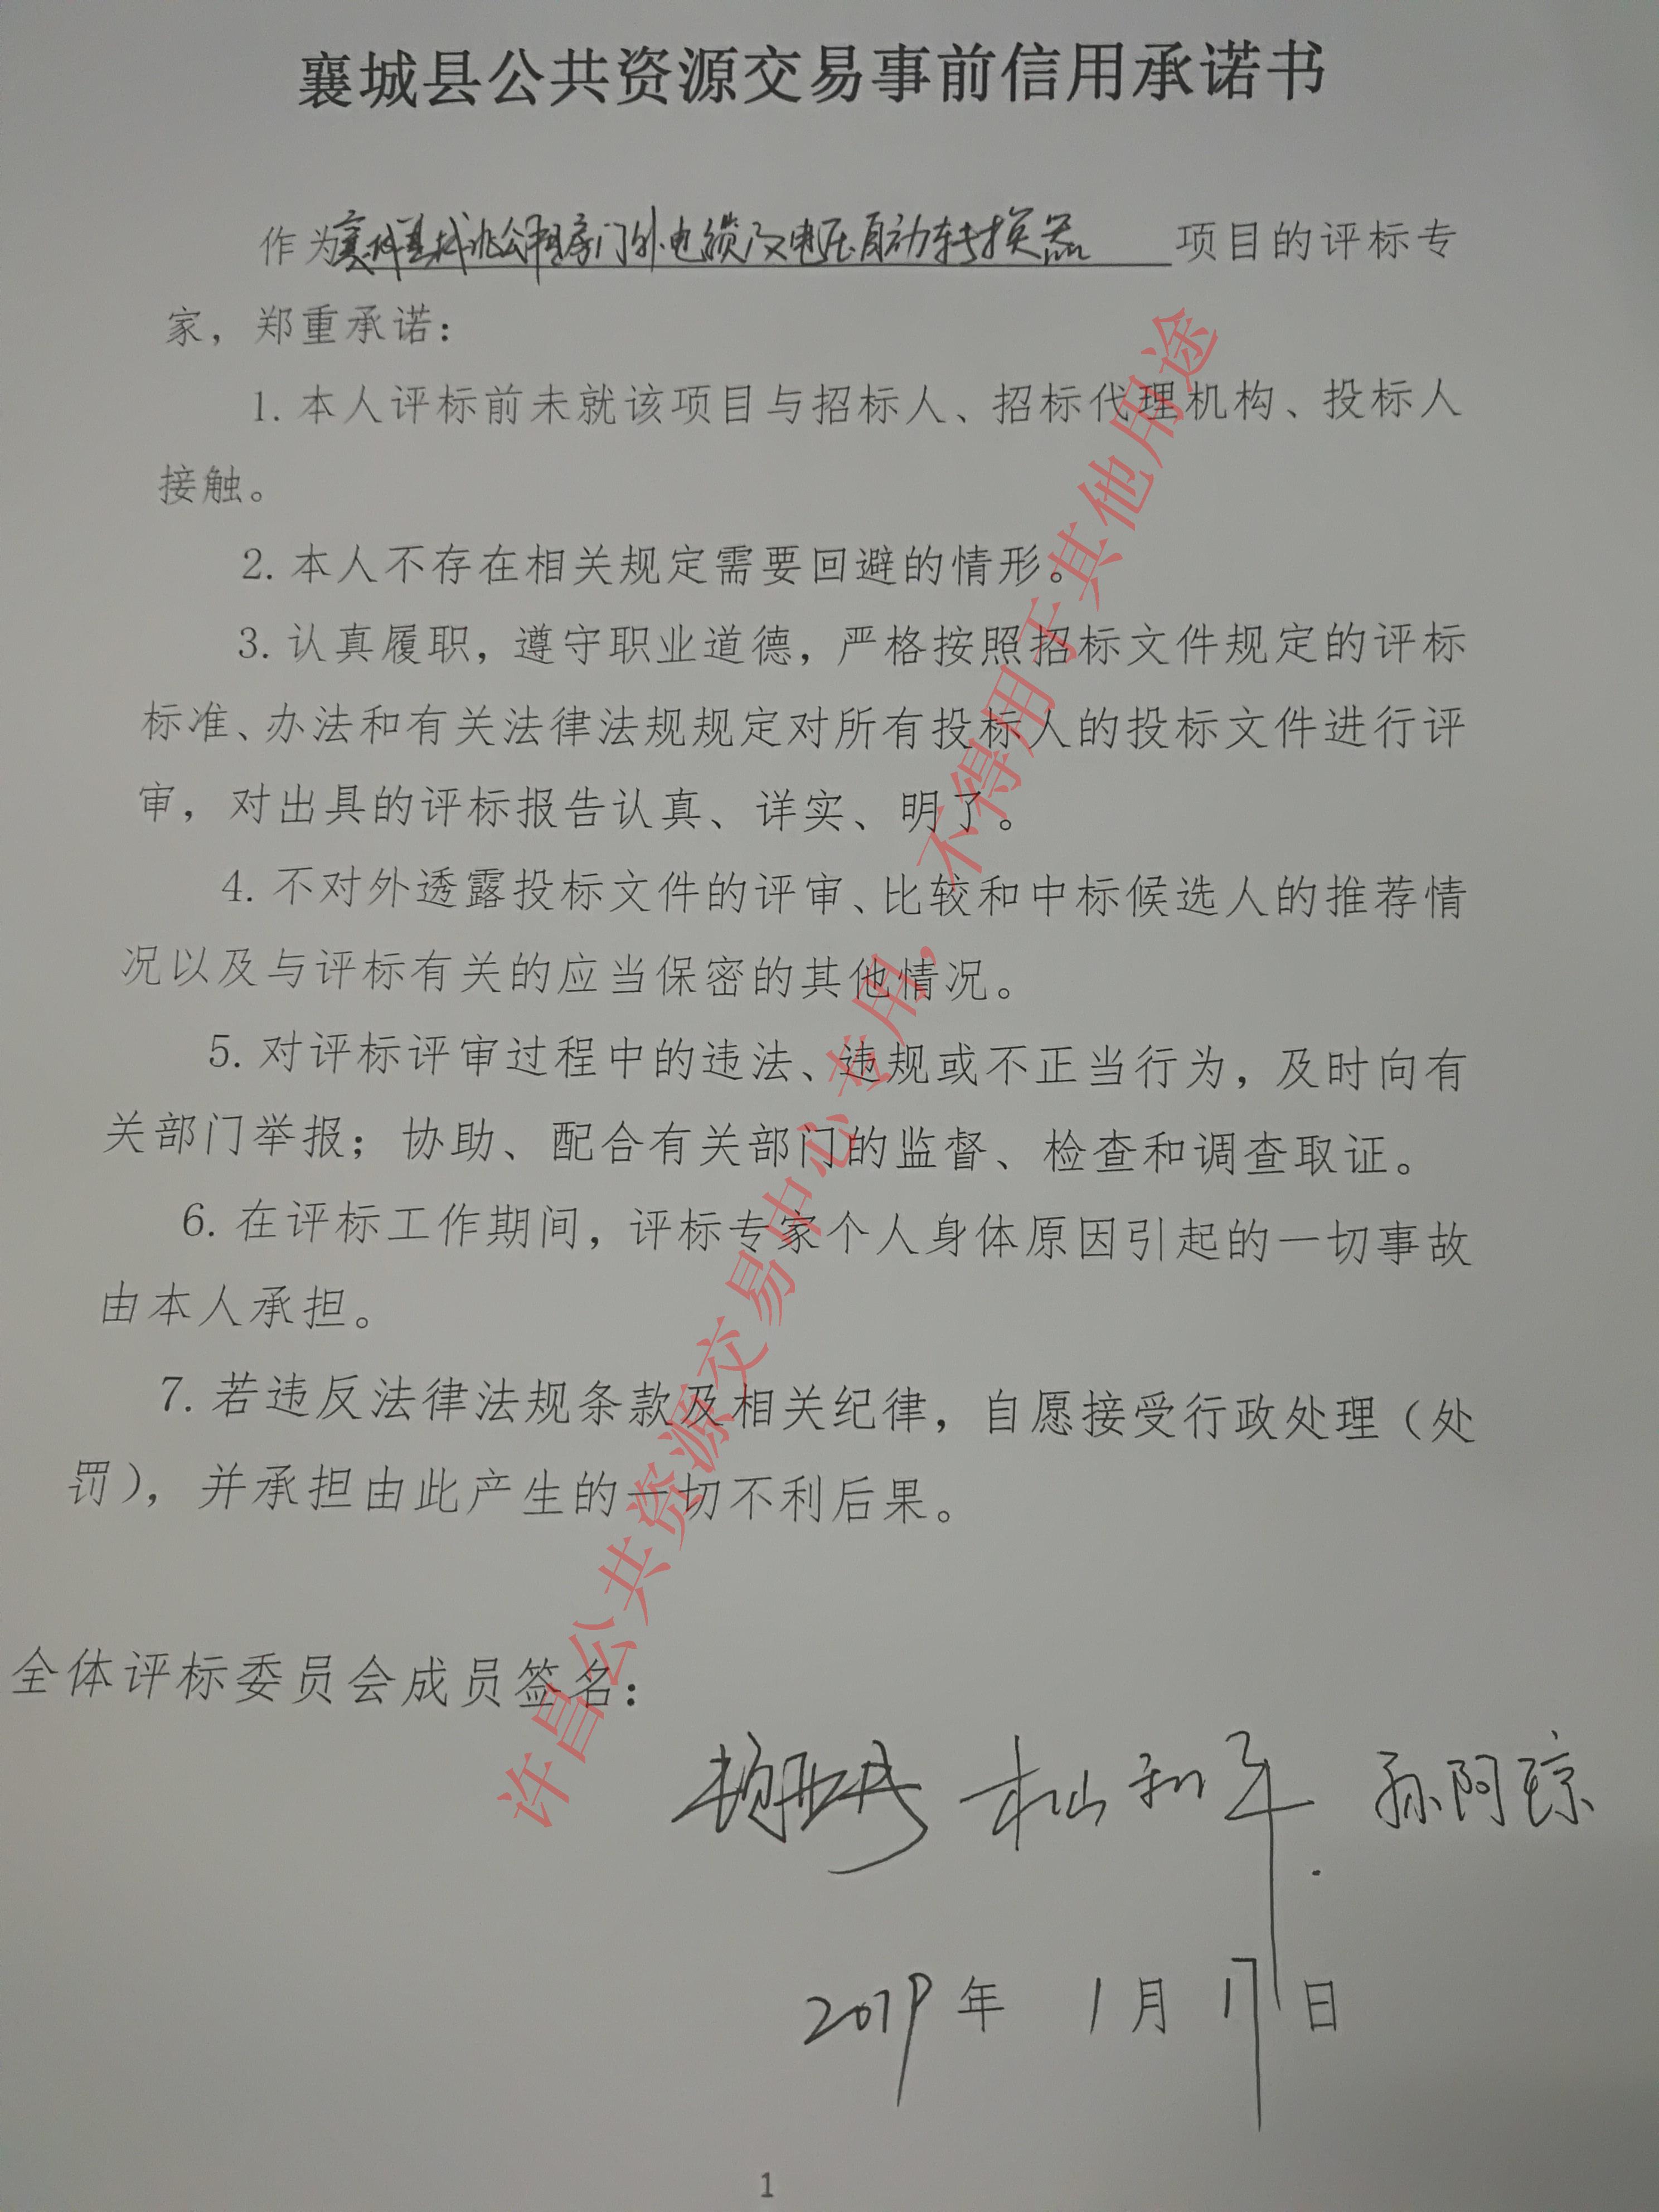 襄城县公共资源交易事前信用承诺书
作为襄城县城北公租房门外电缆及电压自动转换器项目的评标专
家，郑重承诺：
1. 本人评标前未就该项目与招标人、招标代理机构、投标人
接触。
2. 本人不存在相关规定需要回避的情形。
3. 认真履职，遵守职业道德，严格按照招标文件规定的评标
标准、办法和有关法律法规规定对所有投标人的投标文件进行评
审，对出具的评标报告认真、详实、明了。
4. 不对外透露投标文件的评审、比较和中标候选人的推荐情
况以及与评标有关的应当保密的其他情况。
5. 对评标评审过程中的违法、违规或不正当行为，及时向有
关部门举报；协助、配合有关部门的监督、检查和调查取证。
6. 在评标工作期间，评标专家个人身体原因引起的一切事故
由本人承担。
7. 若违反法律法规条款及相关纪律，自愿接受行政处理（处
罚），并承担由此产生的一切不利后果。
全体评标委员会成员签名：
孙阿琼
2019年 1月 17日
1
许昌公共资源交易中心专用，不得用于其他用途